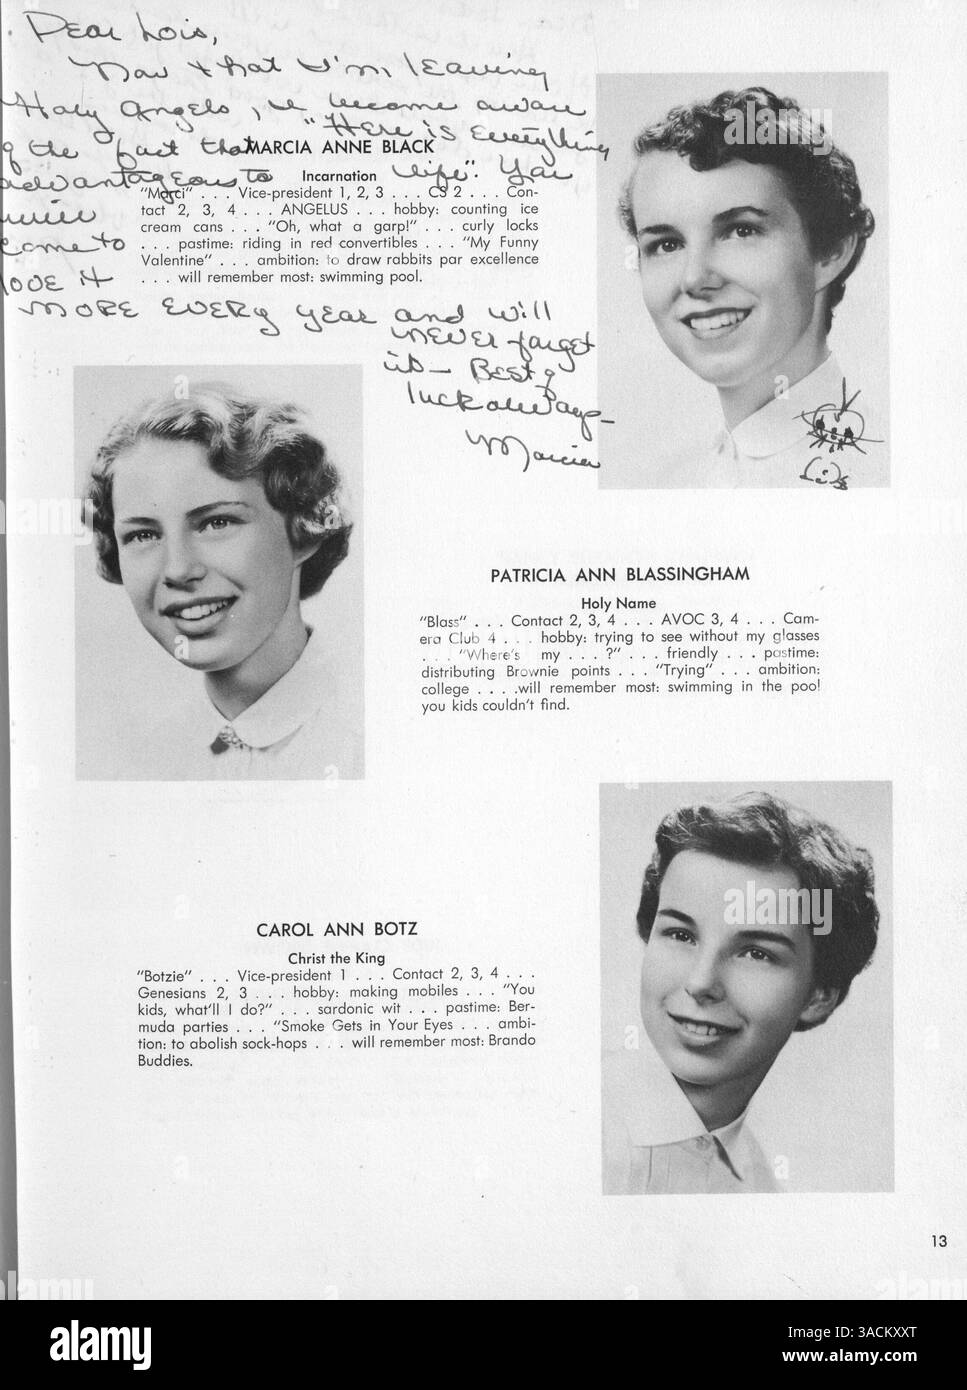 Dear Lois,
Now that I'm leaving
Holy Angels, I become aware
of the fact that "Here is everything
advantageous to life". You
will
come to
love it
MORE EVERY year and will
NEVER forget
it - Best of
luck always -
Marcia
Lois
MARCIA ANNE BLACK
Incarnation
"Marci" . . . Vice-president 1, 2, 3 . . . CS 2 . . . Con-
tact 2, 3, 4 . . . ANGELUS . . . hobby: counting ice
cream cans . . . "Oh, what a garp!" . . . curly locks
. . . pastime: riding in red convertibles . . . "My Funny
Valentine" . . . ambition: to draw rabbits par excellence
. . . will remember most: swimming pool.
PATRICIA ANN BLASSINGHAM
Holy Name
"Blass" . . . Contact 2, 3, 4 . . . AVOC 3, 4 . . . Cam-
era Club 4 . . . hobby: trying to see without my glasses
. . . "Where's my . . . ?" . . . friendly . . . pastime:
distributing Brownie points . . . "Trying" . . . ambition:
college . . . .will remember most: swimming in the pool
you kids couldn't find.
CAROL ANN BOTZ
Christ the King
"Botzie" . . . Vice-president 1 . . . Contact 2, 3, 4 . . .
Genesians 2, 3 . . . hobby: making mobiles . . . "You
kids, what'll I do?" . . . sardonic wit . . . pastime: Ber-
muda parties . . . "Smoke Gets in Your Eyes . . . ambi-
tion: to abolish sock-hops . . . will remember most: Brando
Buddies.
13
alamy
Image ID: 3ACKXXT
www.alamy.com